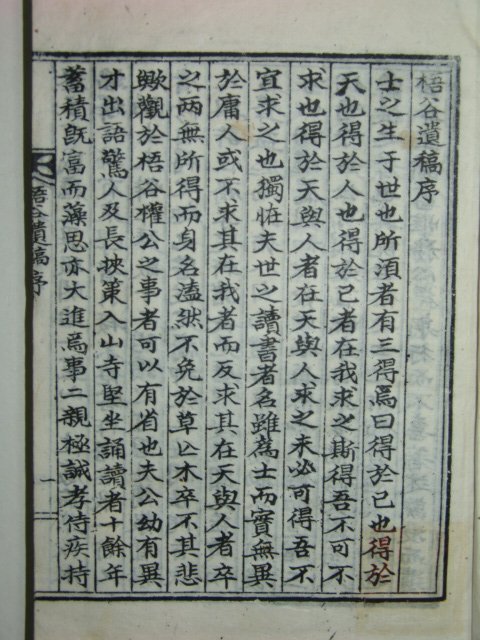 梧谷遺稿序
士之生于世也所湏者有三得焉曰得於己也得於
天也得於人也得於己者在我求之斯得吾不可不
求也得於天與人者在天與人求之未必可得吾不
宜求之也獨恠夫世之讀書者名雖爲士而實無異
於庸人或不求其在我者而反求其在天與人者卒
之两無所得而身名溘㷀不免於草亡木卒不其悲
歟觀於梧谷權公之事者可以有省也夫公幼有異
才出語驚人及長挾策入山寺堅坐誦讀者十餘年
蓄積旣富而藻思亦大進焉事二親極誠孝侍疾持
梧谷遺稿序
一